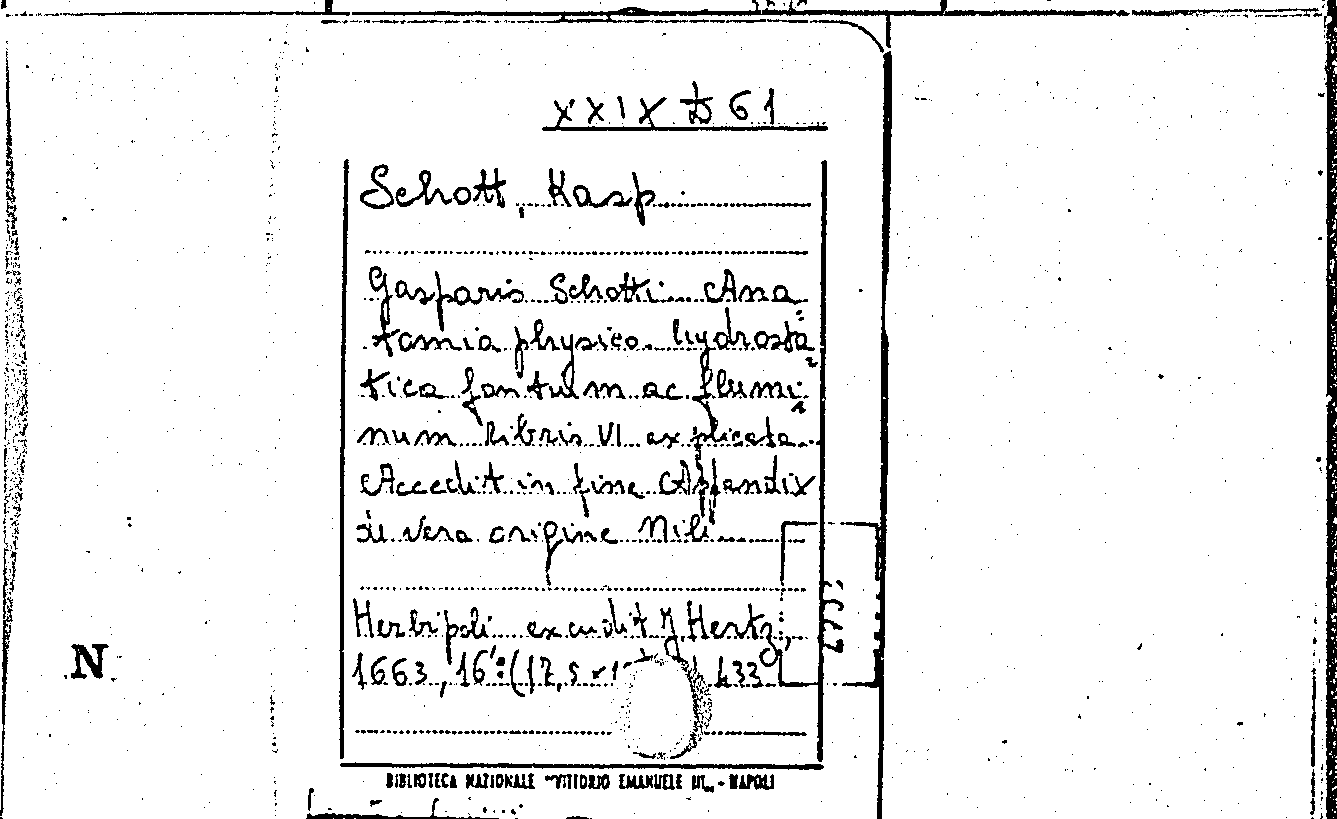 XXIX D 61
Schott, Kasp.
Gasparis Schotti... Ana=
tomia physico-hydrosta=
tica fontium ac flumi=
num libris VI explicata...
Accedit in fine Appendix
de vera origine Nili......
Herbipoli excudit J Hertz,
N
1663, 16°: (17,5 x 433
BIBLIOTECA NAZIONALE "VITTORIO EMANUELE III„ - NAPOLI